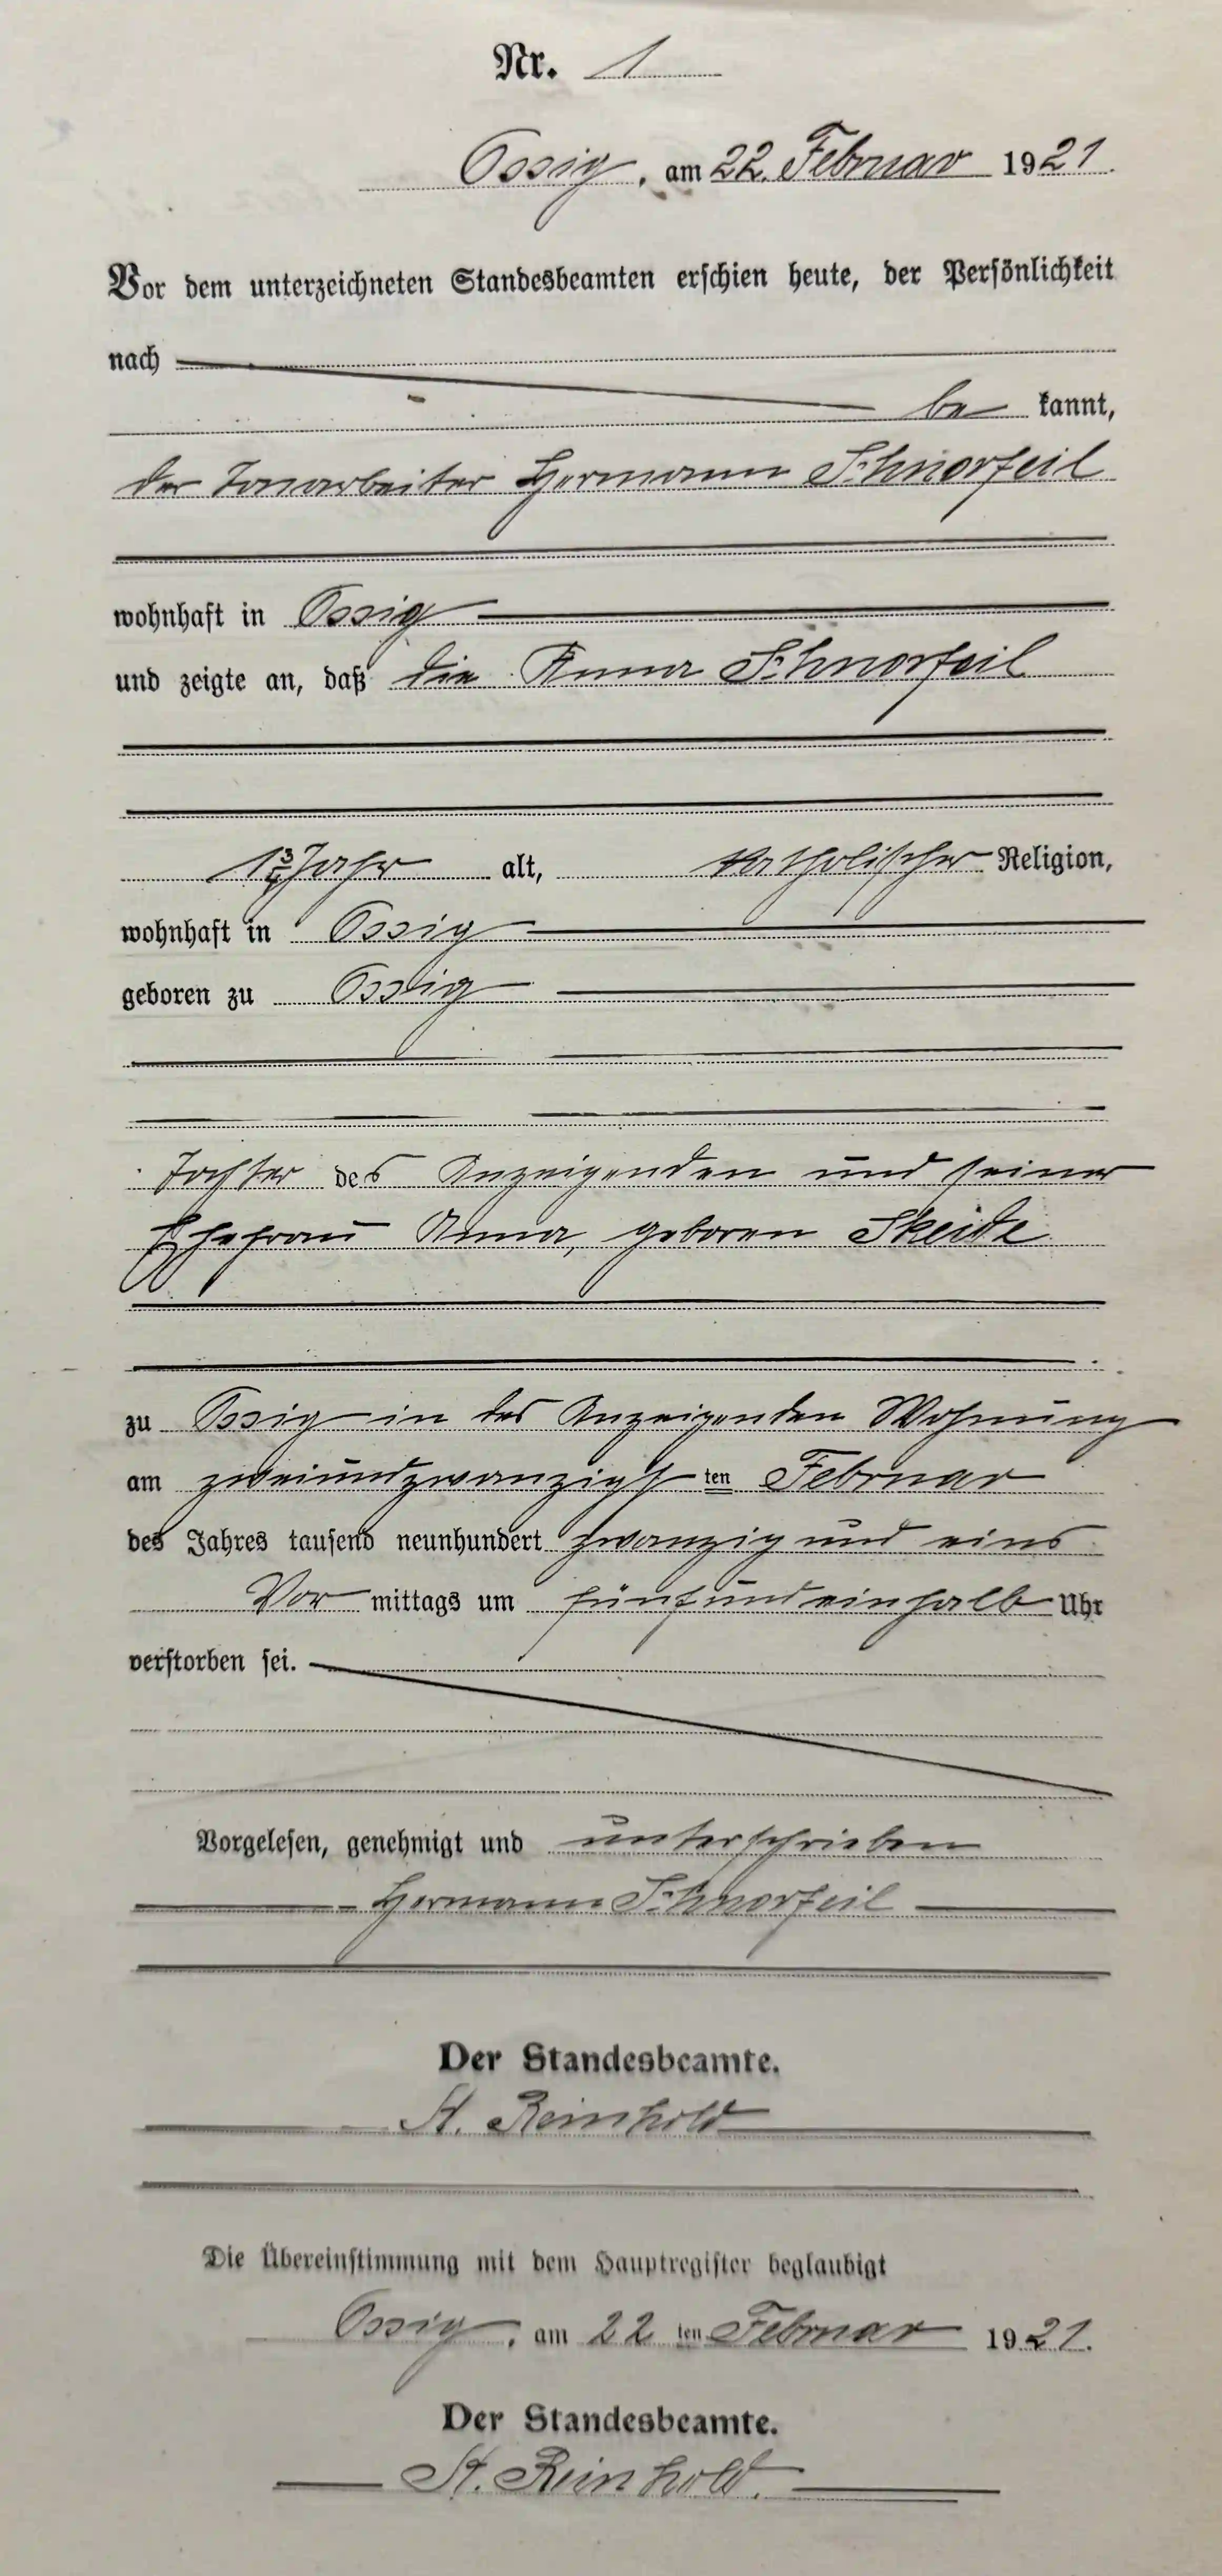 Nr. 1
Ossig, am 22. Februar 1921.
Vor dem unterzeichneten Standesbeamten erschien heute, der Persönlichkeit
nach
be kannt,
der Tonarbeiter Hermann Schnorfeil
wohnhaft in Ossig
und zeigte an, daß die Anna Schnorfeil
1 3/4 Jahr alt, katholischer Religion,
wohnhaft in Ossig
geboren zu Ossig
Tochter des Anzeigenden und seiner
Ehefrau Anna, geboren Skeide
zu Ossig in des Anzeigenden Wohnung
am zweiundzwanzigsten Februar
des Jahres tausend neunhundert zwanzig und eins
Vor mittags um fünfundeinhalb Uhr
verstorben sei.
Vorgelesen, genehmigt und unterschrieben
Hermann Schnorfeil
Der Standesbeamte.
St. Reinhold
Die Übereinstimmung mit dem Hauptregister beglaubigt
Ossig, am 22 ten Februar 1921.
Der Standesbeamte.
St. Reinhold.